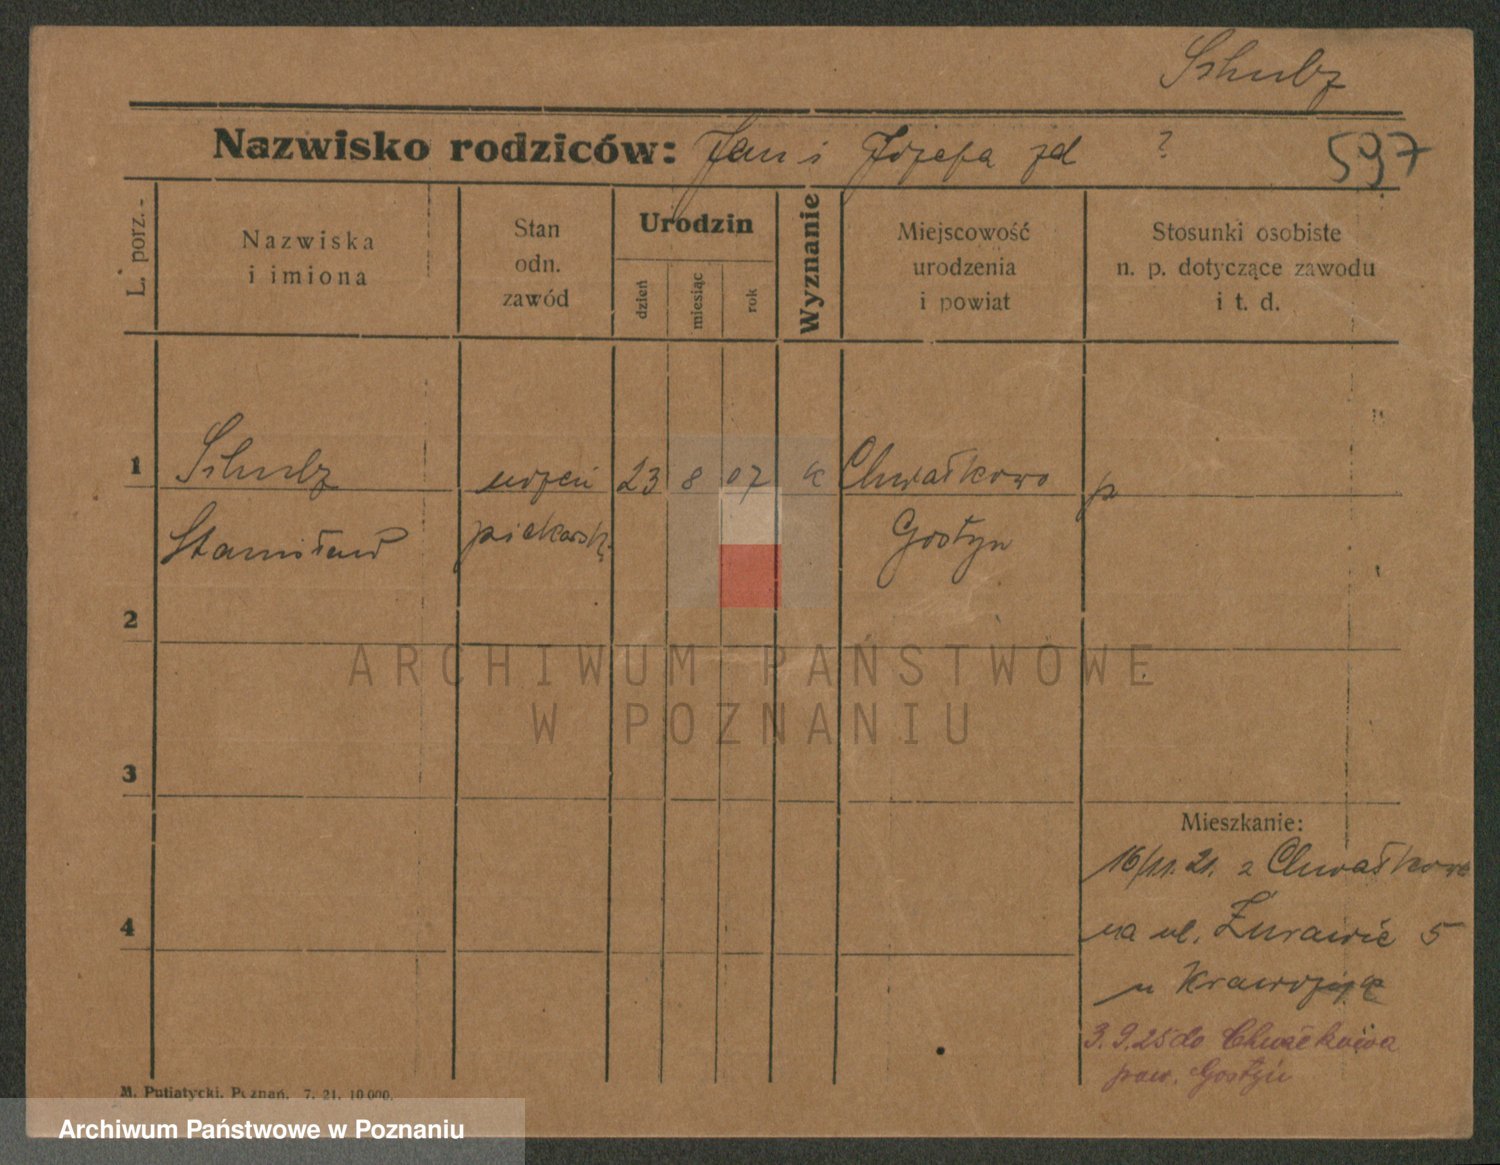 Schulz
Nazwisko rodziców: Jan i Józefa zd ?
597
L. porz.
Nazwiska
i imiona
Stan
odn.
zawód
Urodzin
dzień
miesiąc
rok
Wyznanie
Miejscowość
urodzenia
i powiat
Stosunki osobiste
n. p. dotyczące zawodu
i t. d.
1 Schulz uczeń 23 8 07 k Chwałkowo p
Stanisław piekarski Gostyn
2
ARCHIWUM PAŃSTWOWE
W POZNANIU
3
Mieszkanie:
16/11.21. z Chwałkowa
4 na ul. Żurawia 5
u
3.9.25 do Chwałkowa
pow. Gostyń
M. Putiatycki, Poznań. 7. 21. 10 000.
Archiwum Państwowe w Poznaniu